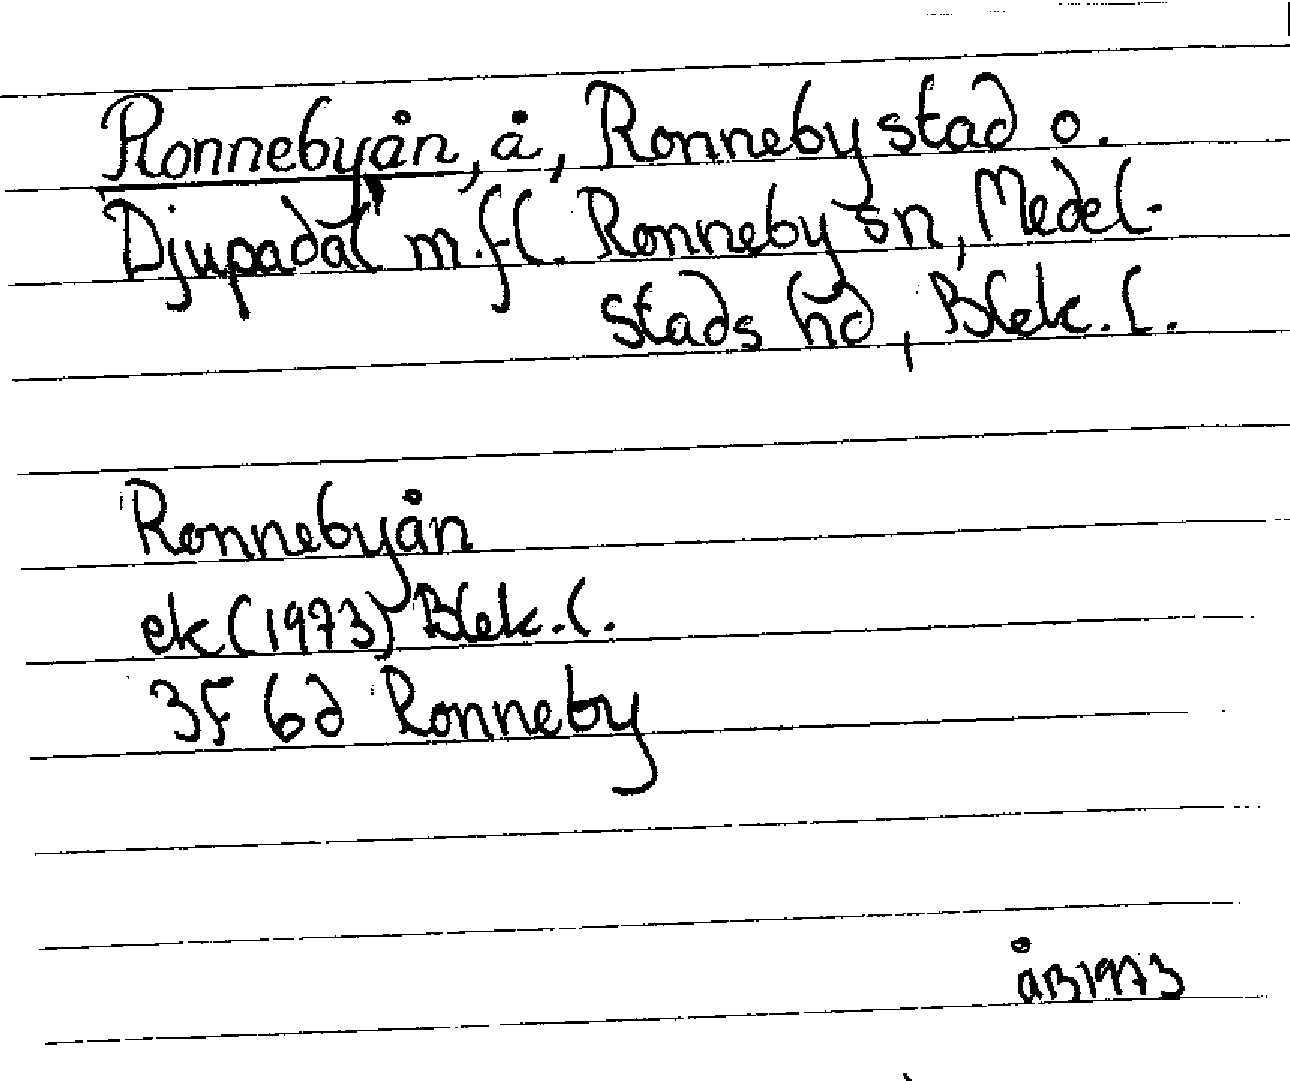 Ronnebyån, å, Ronneby stad o.
Djupadal m.fl. Ronneby sn, Medel-
stads hd, Blek. l.
Ronnebyån
ek (1973) Blek. l.
3F 6d Ronneby
åB1973